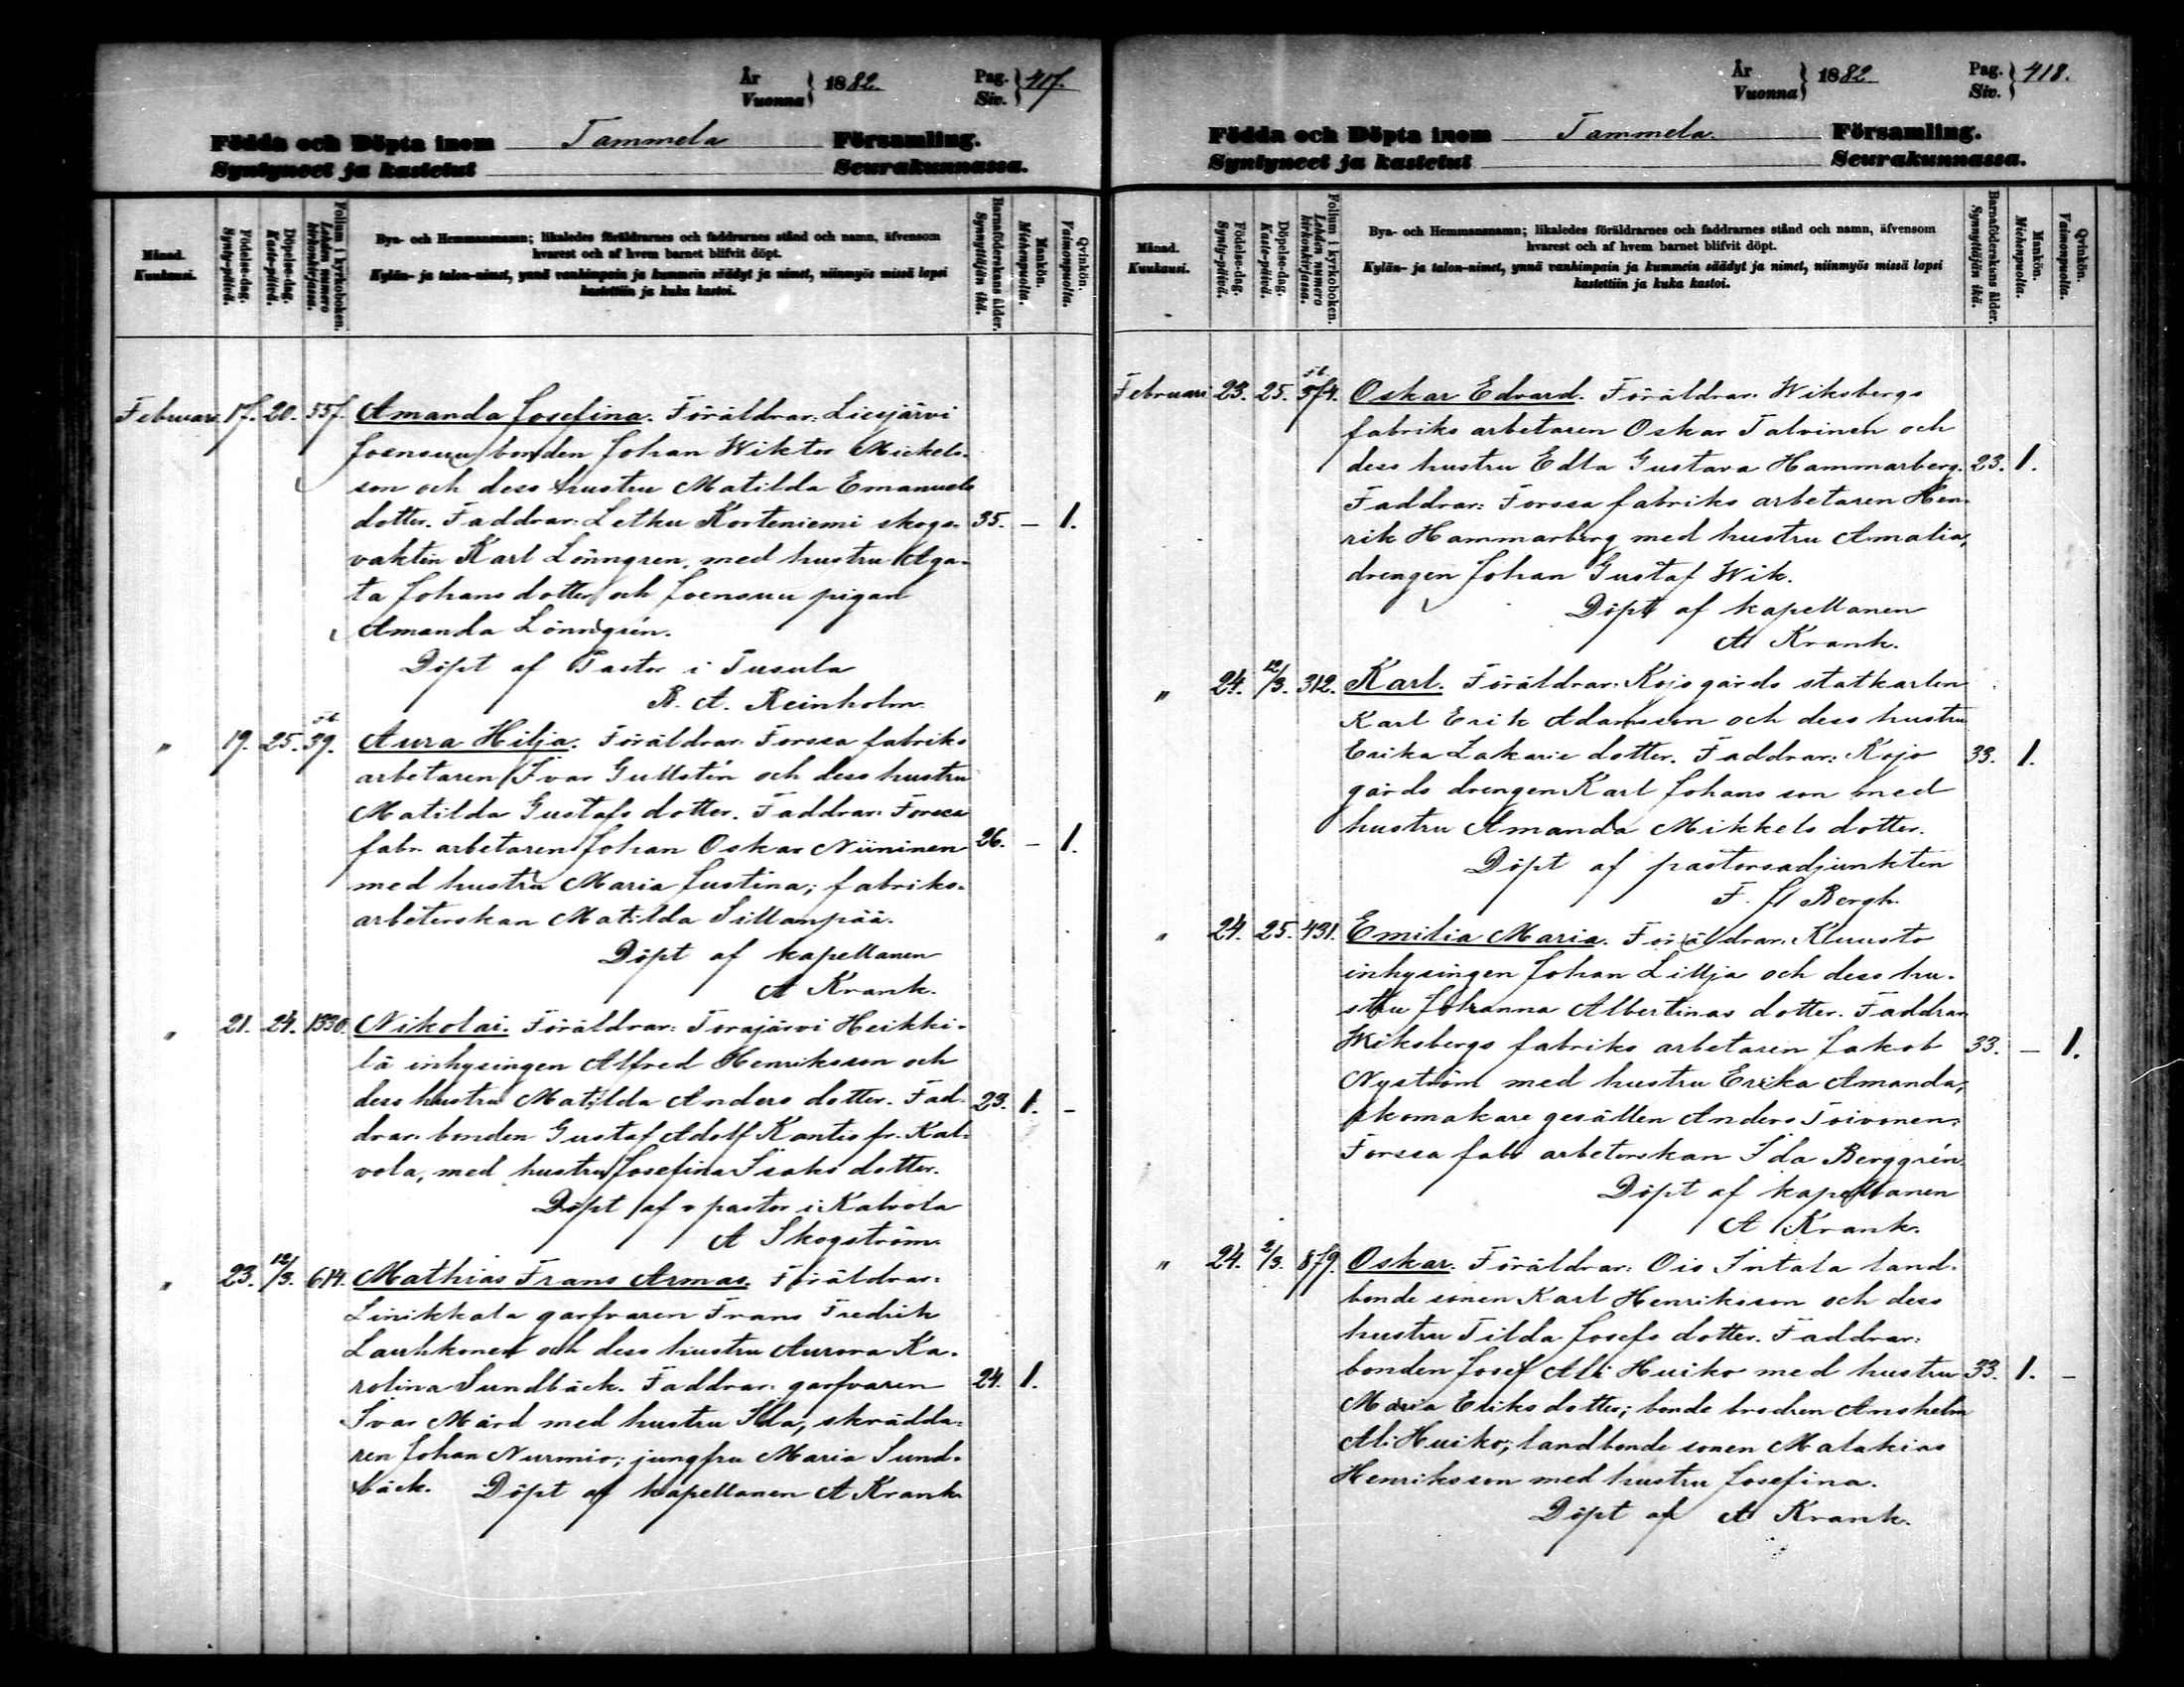 År
Vuonna } 1882. Pag.
Siv. } 417.
Födda och Döpta inom Tammela Församling.
Syntyneet ja kastetut Seurakunnassa.
Månad.
Kuukausi.
Födelse-dag.
Synty-päivä.
Döpelse-dag.
Kaste-päivä.
Folium i kyrkoboken.
Lehden numero
kirkonkirjassa.
Bya- och Hemmansnamn; likaledes föräldrarnes och faddrarnes stånd och namn, äfvensom
hvarest och af hvem barnet blifvit döpt.
Kylän- ja talon-nimet, ynnä vanhimpain ja kummein säädyt ja nimet, niinmyös missä lapsi
kastettiin ja kuka kastoi.
Barnaföderskans ålder.
Synnyttäjän ikä.
Mankön.
Miehenpuolta.
Qvinkön.
Vaimonpuolta.
Februari 17. 20. 557. Amanda Josefina. Föräldrar: Liesjärvi
Joensuu bonden Johan Wiktor Mickels-
son och dess hustru Matilda Emanuels
dotter. Faddrar: Letku Korteniemi skogs- 35. – 1.
vakten Karl Lönngren, med hustru Aga-
ta Johans dotter och Joensuu pigan
Amanda Lönngrén.
Döpt af Pastor i Tusula
B. A. Reinholm.
" 19. 25. 39. Aura Hilja. Föräldrar: Forssa fabriks
arbetaren Ivar Gullstén och dess hustru
Matilda Gustafs dotter. Faddrar: Forssa
fabr. arbetaren Johan Oskar Niininen 26. – 1.
med hustru Maria Justina; fabriks-
arbeterskan Matilda Sillanpää.
Döpt af kapellanen
A Krank.
" 21. 24. 1330. Nikolai. Föräldrar: Torajärvi Heikki-
lä inhysingen Alfred Henriksson och
dess hustru Matilda Anders dotter. Fad- 23. 1. –
drar: bonden Gustaf Adolf Kantis fr. Kal-
vola, med hustru Josefina Isaks dotter.
Döpt af v pastor i Kalvola
A Skogström.
" 23. 12/3. 614. Mathias Frans Armas. Föräldrar:
Linikkala garfvaren Frans Fredrik
Lauhkonen och dess hustru Aurora Ka-
rolina Sundbäck. Faddrar: garfvaren 24. 1.
Ivar Mård med hustru Ida; skrädda-
ren Johan Nurmio; jungfru Maria Sund-
bäck. Döpt af kapellanen A Krank.
År
Vuonna } 1882 Pag.
Siv. } 418.
Födda och Döpta inom Tammela. Församling.
Syntyneet ja kastetut Seurakunnassa.
Månad.
Kuukausi.
Födelse-dag.
Synty-päivä.
Döpelse-dag.
Kaste-päivä.
Folium i kyrkoboken.
Lehden numero
kirkonkirjassa.
Bya- och Hemmansnamn; likaledes föräldrarnes och faddrarnes stånd och namn, äfvensom
hvarest och af hvem barnet blifvit döpt.
Kylän- ja talon-nimet, ynnä vanhimpain ja kummein säädyt ja nimet, niinmyös missä lapsi
kastettiin ja kuka kastoi.
Barnaföderskans ålder.
Synnyttäjän ikä.
Mankön.
Miehenpuolta.
Qvinkön.
Vaimonpuolta.
Februari 23. 25. 574. Oskar Edvard. Föräldrar: Wiksbergs
fabriks arbetaren Oskar Talvinen och
dess hustru Edla Gustava Hammarberg. 23. 1.
Faddrar: Forssa fabriks arbetaren Hen-
rik Hammarberg med hustru Amalia,
drengen Johan Gustaf Wik.
Döpt af kapellanen
A Krank.
" 24. 12/3. 312. Karl. Föräldrar: Kojo gårds statkarlen
Karl Erik Adamsson och dess hustru
Erika Zakarie dotter. Faddrar: Kojo 33. 1.
gårds drengen Karl Johans son med
hustru Amanda Mikkels dotter.
Döpt af pastorsadjunkten
F. H Bergh.
" 24. 25. 431. Emilia Maria. Föräldrar: Kluusto
inhysingen Johan Lillja och dess hu-
stru Johanna Albertinas dotter. Faddrar
Wiksbergs fabriks arbetaren Jakob 33. – 1.
Nyström med hustru Erika Amanda;
skomakare gesällen Anders Toivonen;
Forssa fabr arbeterskan Ida Berggrén.
Döpt af kapellanen
A Krank.
" 24. 2/3. 879. Oskar. Föräldrar: Ois Intala land-
bonde sonen Karl Henriksson och dess
hustru Tilda Josefs dotter. Faddrar:
bonden Josef Ali Huiko med hustru 33. 1. –
Maria Eriks dotter; bonde brodren Anshelm
Ali Huiko; landbonde sonen Malakias
Henriksson med hustru Josefina.
Döpt af A Krank.